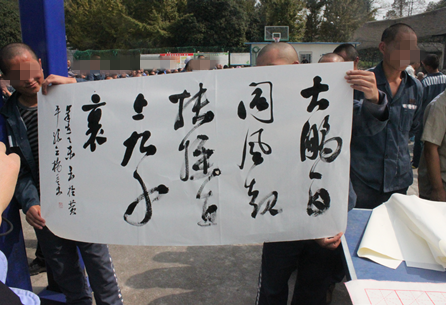 大鹏一日
同风起
扶摇直
上九万
裏